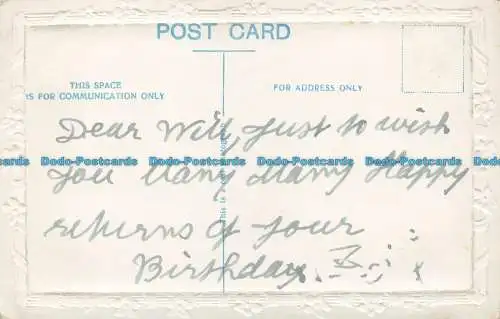 POST CARD
THIS SPACE
IS FOR COMMUNICATION ONLY
FOR ADDRESS ONLY
Dear Will, Just to wish
Dodo-Postcards Dodo-Postcards Dodo-Postcards Dodo-Postcards Dodo-Postcards
you Many Many Happy
returns of your
Birthday.
This is a